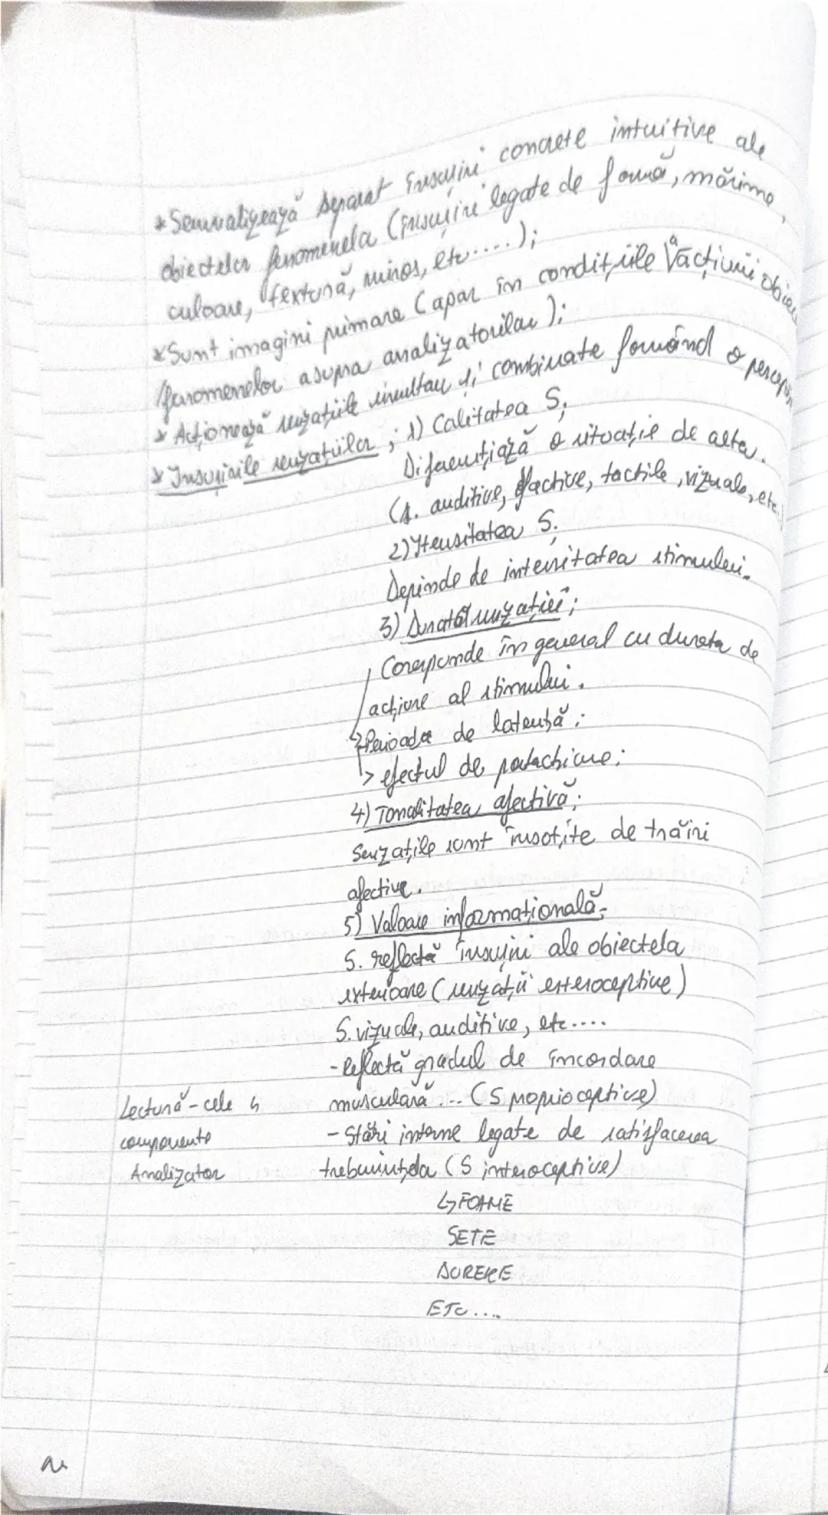 * Semnalizează separat însușiri concrete intuitive ale
obiectelor fenomenela (însușiri legate de formă, mărime,
culoare, textură, miros, etc.....);
* Sunt imagini primare (apar în condițiile acțiunii
fenomenelor asupra analizatorilor);
* Acționează senzațiile simultan și combinate formând o
* Însușirile senzațiilor; 1) Calitatea S;
Diferențiază o situație de alta.
(s. auditive, olfactive, tactile, vizuale, etc.
2) Itensitatea S.
Depinde de intensitatea stimulului.
3) Durata senzației;
Corespunde în general cu durata de
acțiune al stimului.
↳ Perioada de latență;
↳ efectul de
4) Tonalitatea afectivă;
Senzațile sunt însoțite de trăiri
afective.
5) Valoare informațională;
S. reflectă însușiri ale obiectela
exterioare (senzații exteroceptive)
S. vizuale, auditive, etc....
- Reflectă gradul de încordare
musculară... (S proprioceptive)
- Stări interne legate de satisfacerea
trebuințela (S interoceptive)
↳ FOAME
SETE
DURERE
ETC....
Lectură - cele 4
componente
Analizator